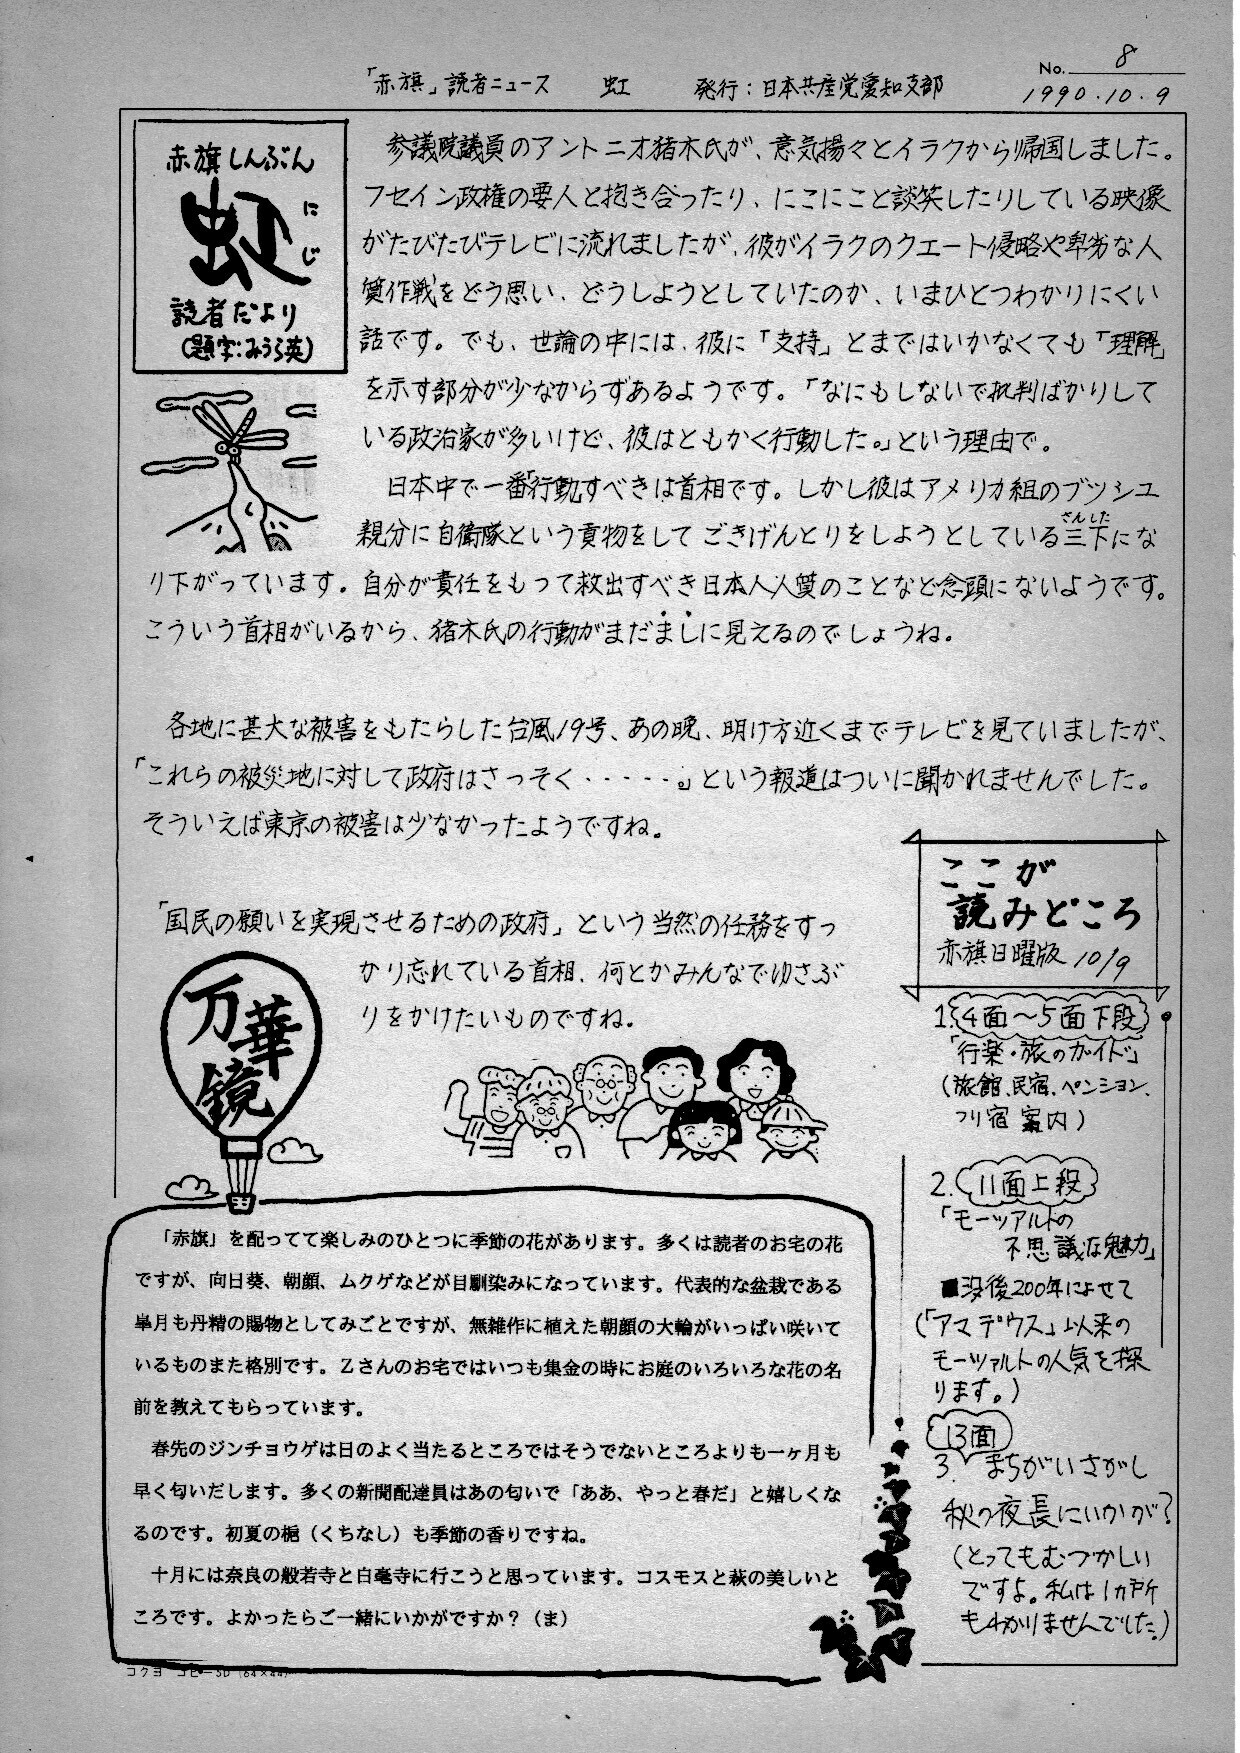 「赤旗」読者ニュース 虹 発行：日本共産党愛知支部
No. 8
1990.10.9
赤旗しんぶん
虹
にじ
読者だより
(題字：みうら英)
参議院議員のアントニオ猪木氏が、意気揚々とイラクから帰国しました。
フセイン政権の要人と抱き合ったり、にこにこと談笑したりしている映像
がたびたびテレビに流れましたが、彼がイラクのクエート侵略や卑劣な人
質作戦をどう思い、どうしようとしていたのか、いまひとつわかりにくい
話です。でも、世論の中には、彼に「支持」とまではいかなくても「理解」
を示す部分が少なからずあるようです。「なにもしないで批判ばかりして
いる政治家が多いけど、彼はともかく行動した。」という理由で。
日本中で一番「行動」すべきは首相です。しかし彼はアメリカ組のブッシュ
親分に自衛隊という貢物をしてごきげんとりをしようとしている三下にな
さんした
り下がっています。自分が責任をもって救出すべき日本人人質のことなど念頭にないようです。
こういう首相がいるから、猪木氏の行動がまだましに見えるのでしょうね。
各地に甚大な被害をもたらした台風19号、あの晩、明け方近くまでテレビを見ていましたが、
「これらの被災地に対して政府はさっそく・・・・・。」という報道はついに聞かれませんでした。
そういえば東京の被害は少なかったようですね。
「国民の願いを実現させるための政府」という当然の任務をすっ
かり忘れている首相、何とかみんなでゆさぶ
りをかけたいものですね。
万華鏡
「赤旗」を配ってて楽しみのひとつに季節の花があります。多くは読者のお宅の花
ですが、向日葵、朝顔、ムクゲなどが目馴染みになっています。代表的な盆栽である
皐月も丹精の賜物としてみごとですが、無雑作に植えた朝顔の大輪がいっぱい咲いて
いるものまた格別です。Ｚさんのお宅ではいつも集金の時にお庭のいろいろな花の名
前を教えてもらっています。
春先のジンチョウゲは日のよく当たるところではそうでないところよりも一ヶ月も
早く匂いだします。多くの新聞配達員はあの匂いで「ああ、やっと春だ」と嬉しくな
るのです。初夏の梔（くちなし）も季節の香りですね。
十月には奈良の般若寺と白毫寺に行こうと思っています。コスモスと萩の美しいと
ころです。よかったらご一緒にいかがですか？（ま）
ここが
読みどころ
赤旗日曜版 10/9
1. 4面～5面下段
「行楽・旅のガイド」
(旅館、民宿、ペンション、
フリ宿案内)
2. 11面上段
「モーツアルトの
不思議な魅力」
■没後200年によせて
(「アマデウス」以来の
モーツァルトの人気を探
ります。)
13面
3. まちがいさがし
秋の夜長にいかが？
(とってもむつかしい
ですよ。私は1カ所
もわかりませんでした。)
コクヨ コピー50 (64×44)